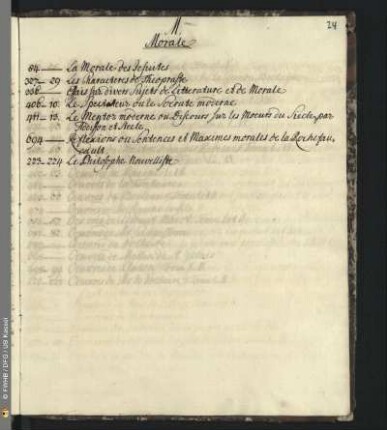 M.
24
Morale
84 — La Morale des Jesuites
327 — 29 Les Characteres de Theophraste
336 — Essais sur divers Sujets de Litterature et de Morale
406 — 10. Le Spectateur ou le Socrate moderne
411 — 13. Le Mentor moderne ou Discours sur les Moeurs du Siecle, par
Addison et Steele
694 — Reflexions ou Sentences et Maximes morales de la Rochefou
cault
223 — 224 Le Philosophe Nouvelliste
© FWHB / DFG / UB Kassel